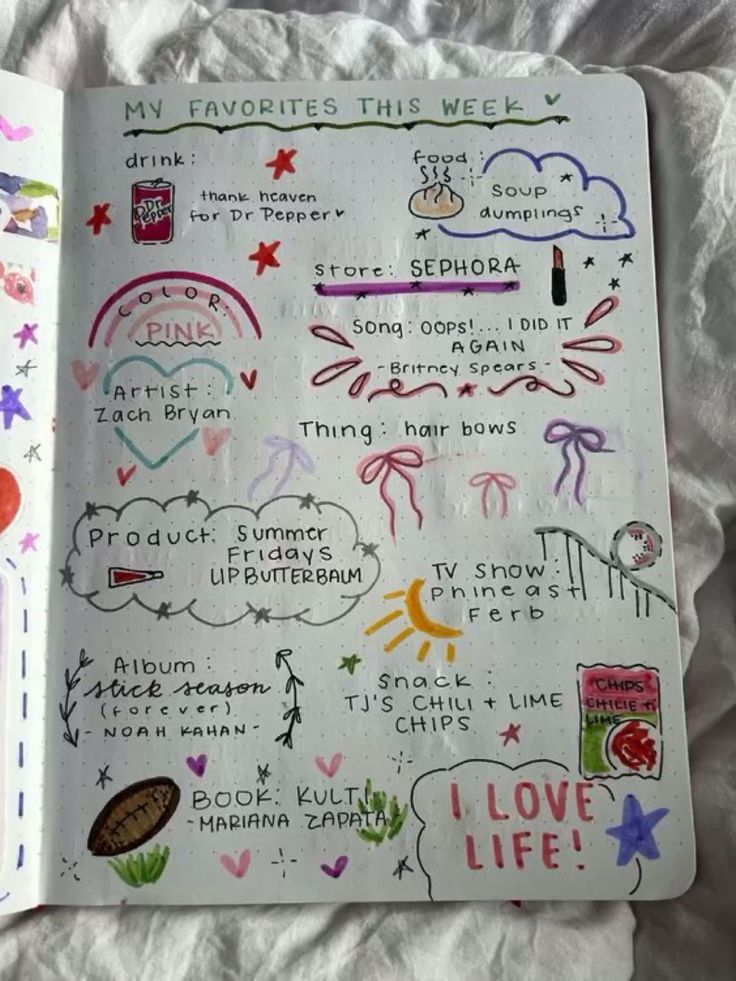 MY FAVORITES THIS WEEK
drink:
Dr
Pepper
thank heaven
for Dr Pepper
food:
soup
dumplings
store: SEPHORA
COLOR:
PINK
Song: OOPS!... I DID IT
AGAIN
- Britney Spears -
Artist:
Zach Bryan
Thing: hair bows
Product: Summer
Fridays
LIP BUTTER BALM
TV Show:
Phineas +
Ferb
Album:
stick season
(forever)
- NOAH KAHAN -
Snack:
TJ'S CHILI + LIME
CHIPS
CHIPS
CHILIE +
LIME
BOOK: KULTI
- MARIANA ZAPATA
I LOVE
LIFE!